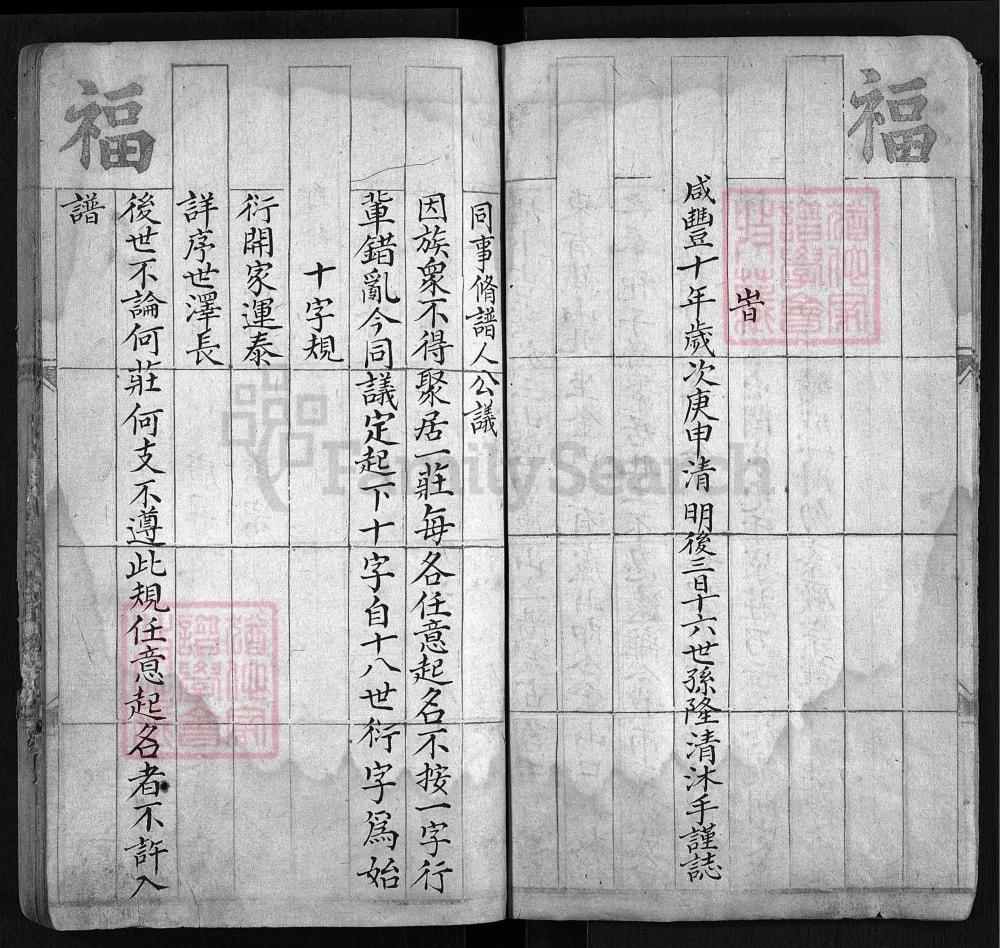 福
旹
咸豐十年歲次庚申清明後三日十六世孫隆清沐手謹誌
同事脩譜人公議
因族衆不得聚居一莊每各任意起名不按一字行
軰錯亂今同議定起下十字自十八世衍字爲始
十字規
衍開家運泰
詳序世澤長
後世不論何莊何支不遵此規任意起名者不許入
譜
福
FamilySearch